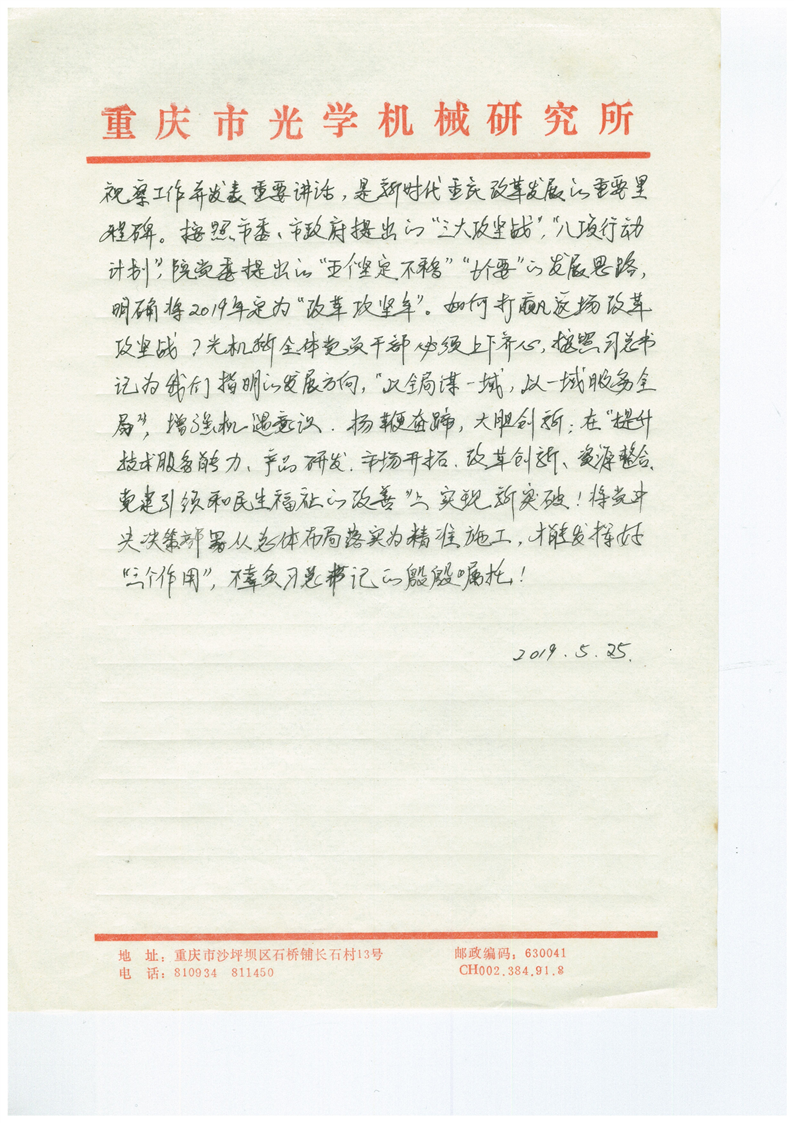 重庆市光学机械研究所
视察工作并发表重要讲话，是新时代重庆改革发展的重要里
程碑。按照市委、市政府提出的“三大攻坚战”，“八项行动
计划”，院党委提出的“五个坚定不移”“六个要”的发展思路，
明确将2019年定为“改革攻坚年”。如何打赢这场改革
攻坚战？光机所全体党员干部必须上下齐心，按照习总书
记为我们指明的发展方向，“以全局谋一域，以一域服务全
局”，增强机遇意识．扬鞭奋蹄，大胆创新；在“提升
技术服务能力、产品研发．市场开拓．改革创新、资源整合、
党建引领和民生福祉的改善”上实现新突破！将党中
央决策部署从总体布局落实为精准施工，才能发挥好
“三个作用”，不辜负习总书记的殷殷嘱托！
2019.5.25.
地 址：重庆市沙坪坝区石桥铺长石村13号 邮政编码：630041
电 话：810934 811450 CH002.384.91.8